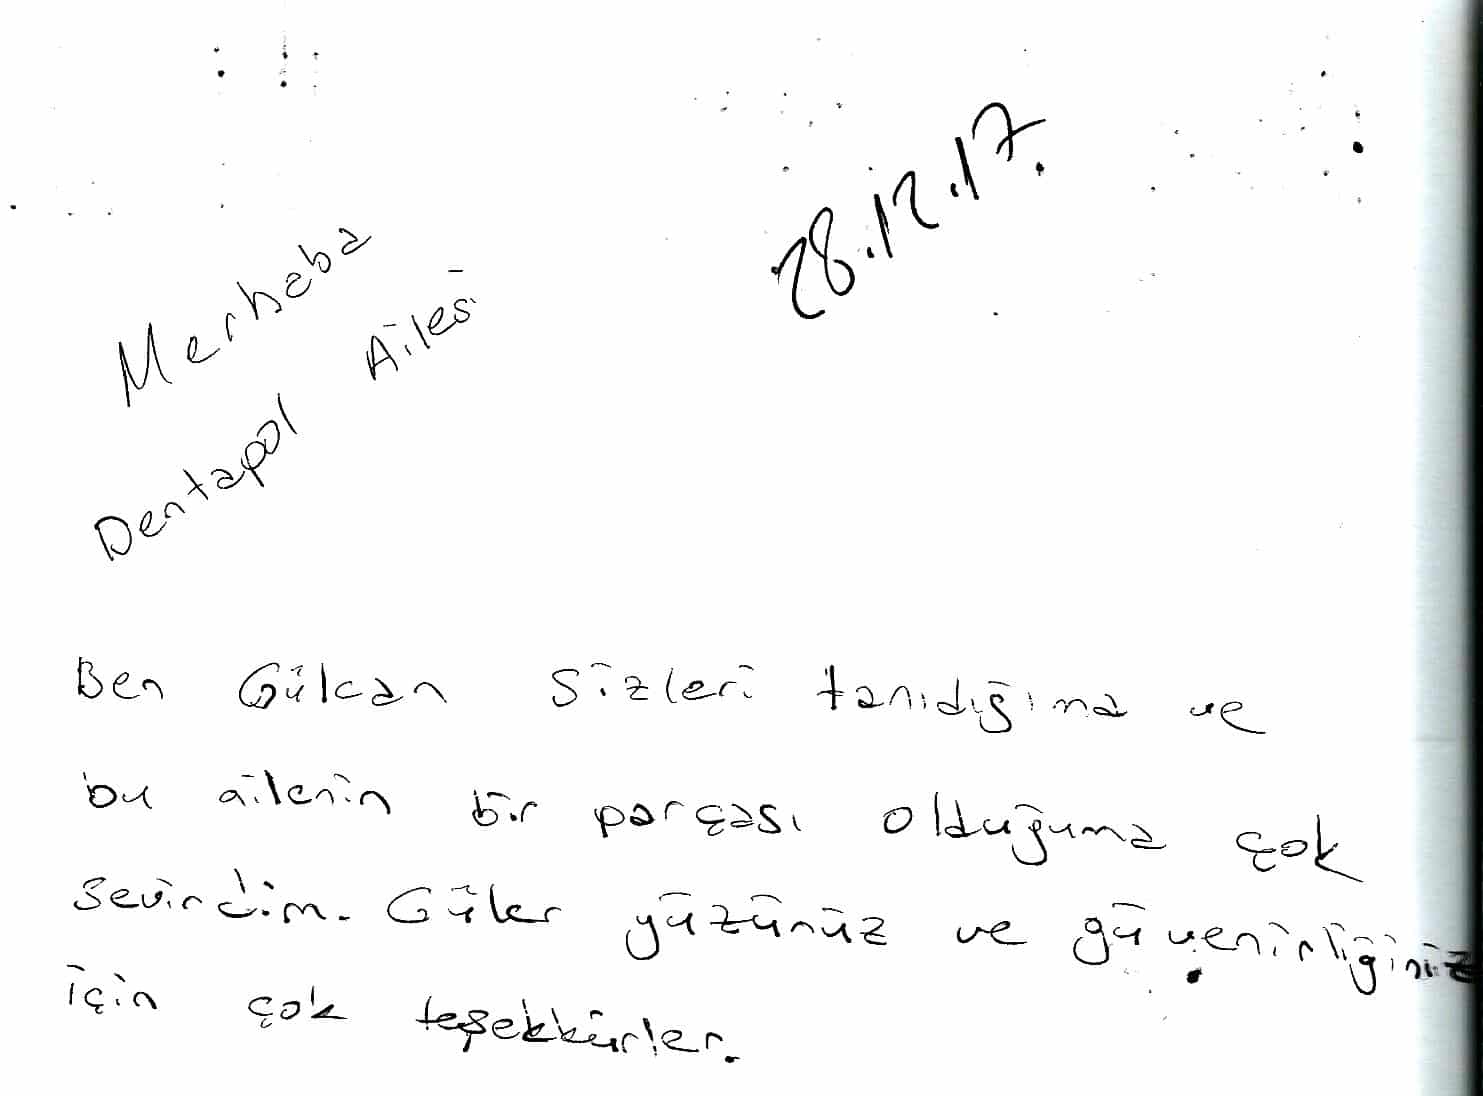 28.12.17.
Merhaba
Dentapol Ailesi
Ben Gülcan sizleri tanıdığıma ve
bu ailenin bir parçası olduğuma çok
sevindim. Güler yüzünüz ve güvenirliğiniz
için çok teşekkürler.